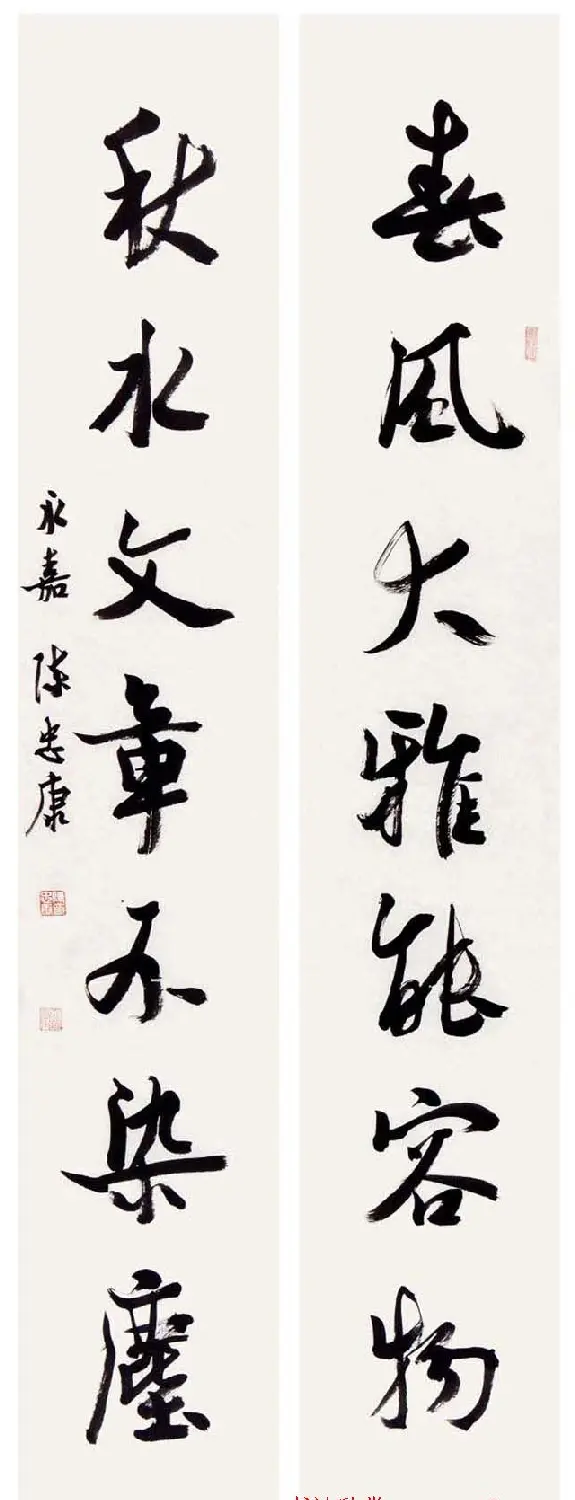 春風大雅能容物
秋水文章不染塵
永嘉 陳忠康